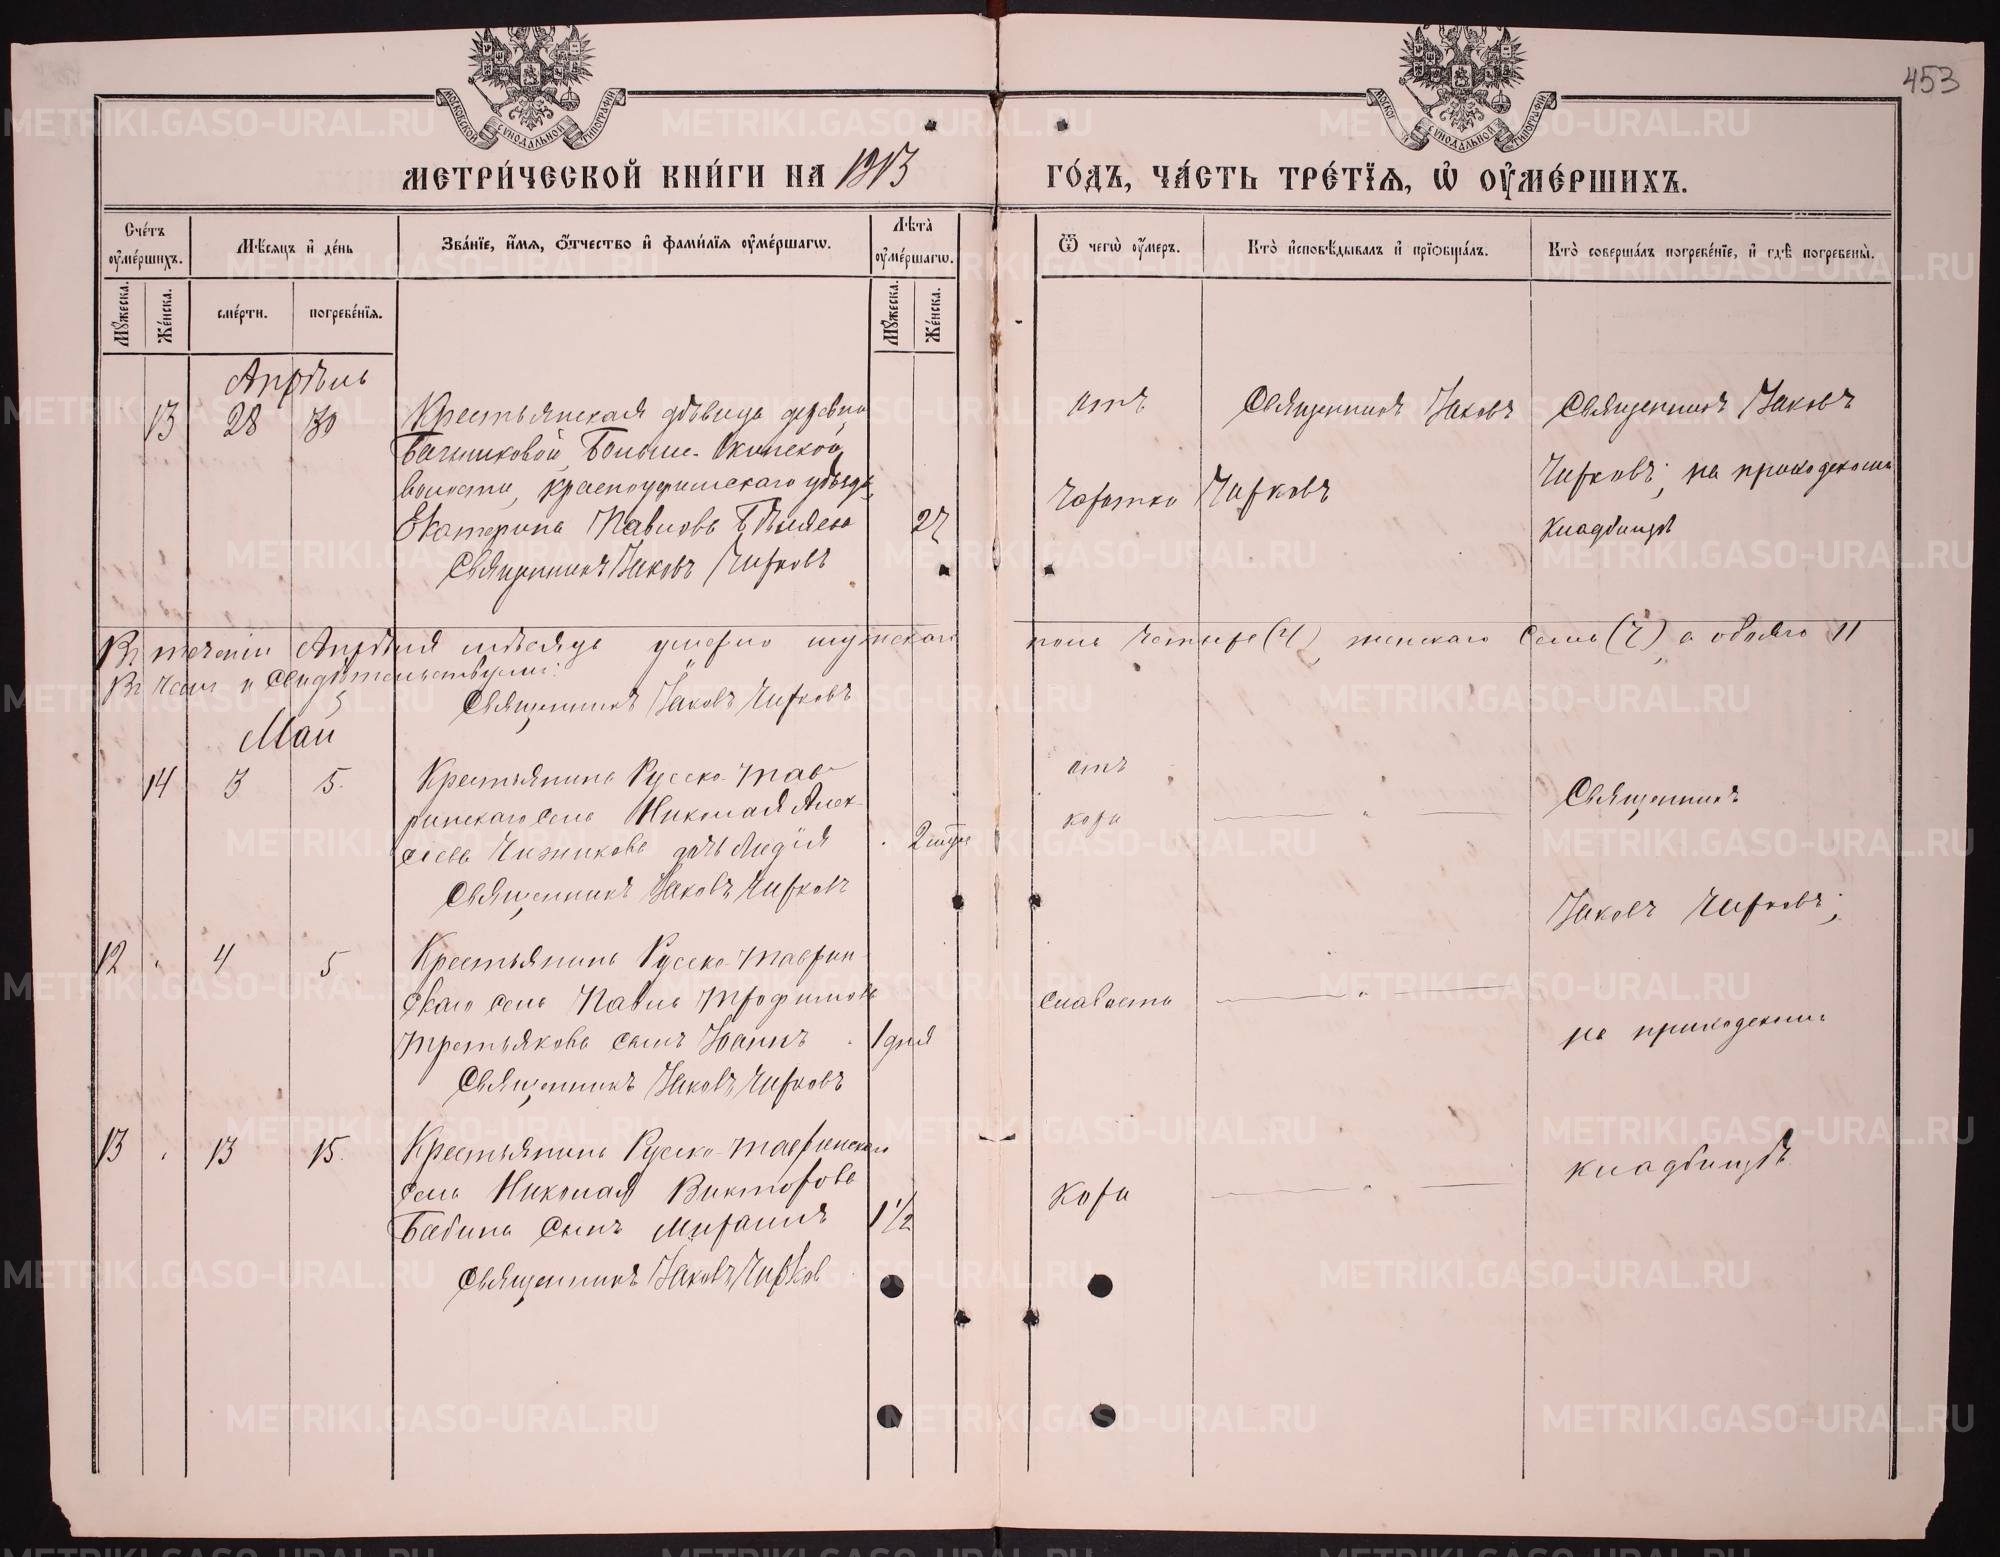 453
МОСКОВСКОЙ СѴНОДАЛЬНОЙ ТИПОГРАФІИ
МЕТРИ́ЧЕСКОЙ КНИ́ГИ НА 1913 ГО́ДЪ, ЧА́СТЬ ТРЕ́ТЇѦ, Ѽ ОУ҆МЕ́РШИХЪ.
Сче́тъ оу҆ме́ршихъ.
Мꙋ́жеска.
Же́нска.
Мѣ́сѧцъ и҆ де́нь
сме́рти.
погребе́нїѧ.
Зва́нїе, и҆́мѧ, ѻ҆́тчество и҆ фами́лїѧ оу҆ме́ршагѡ.
Лѣ́та оу҆ме́ршагѡ.
Мꙋ́жеска.
Же́нска.
Ѿ чегѡ̀ оу҆́меръ.
Кто̀ и҆сповѣ́дывалъ и҆ прїѡбща́лъ.
Кто̀ соверша́лъ погребе́нїе, и҆ гдѣ̀ погребены̀.
Апрѣль
13 28 30 Крестьянская дѣвица деревни
Бачниковой, Больше-Окинской
волости, красноуфимскаго уѣзда,
Екатерина Павлова Бѣляева 27
Священникъ Іаковъ Чирковъ
отъ
чахотки
Священникъ Іаковъ
Чирковъ
Священникъ Іаковъ
Чирковъ; на приходскомъ
кладбищѣ
Въ теченіи Апрѣля мѣсяца умерло мужскаго пола четыре (4), женскаго семь (7), а обоего 11
Въ чемъ и свидѣтельствуемъ:
Священникъ Іаковъ Чирковъ
Май
14 3 5. Крестьянина Русско-тав-
ринскаго села Николая Алек-
сѣева Чижикова дочь Лидія 2
Священникъ Іаковъ Чирковъ
отъ
кори
Священникъ
Іаковъ Чирковъ;
12 4 5 Крестьянина Русско-таврин-
скаго села Павла Трофимова
Третьякова сынъ Іоаннъ 1 дня
Священникъ Іаковъ Чирковъ
слабости
на приходскомъ
13 13 15. Крестьянина Русско-тавринскаго
села Николая Викторова
Бабина сынъ Михаилъ 1 1/2
Священникъ Іаковъ Чирков
кори
кладбищѣ
METRIKI.GASO-URAL.RU